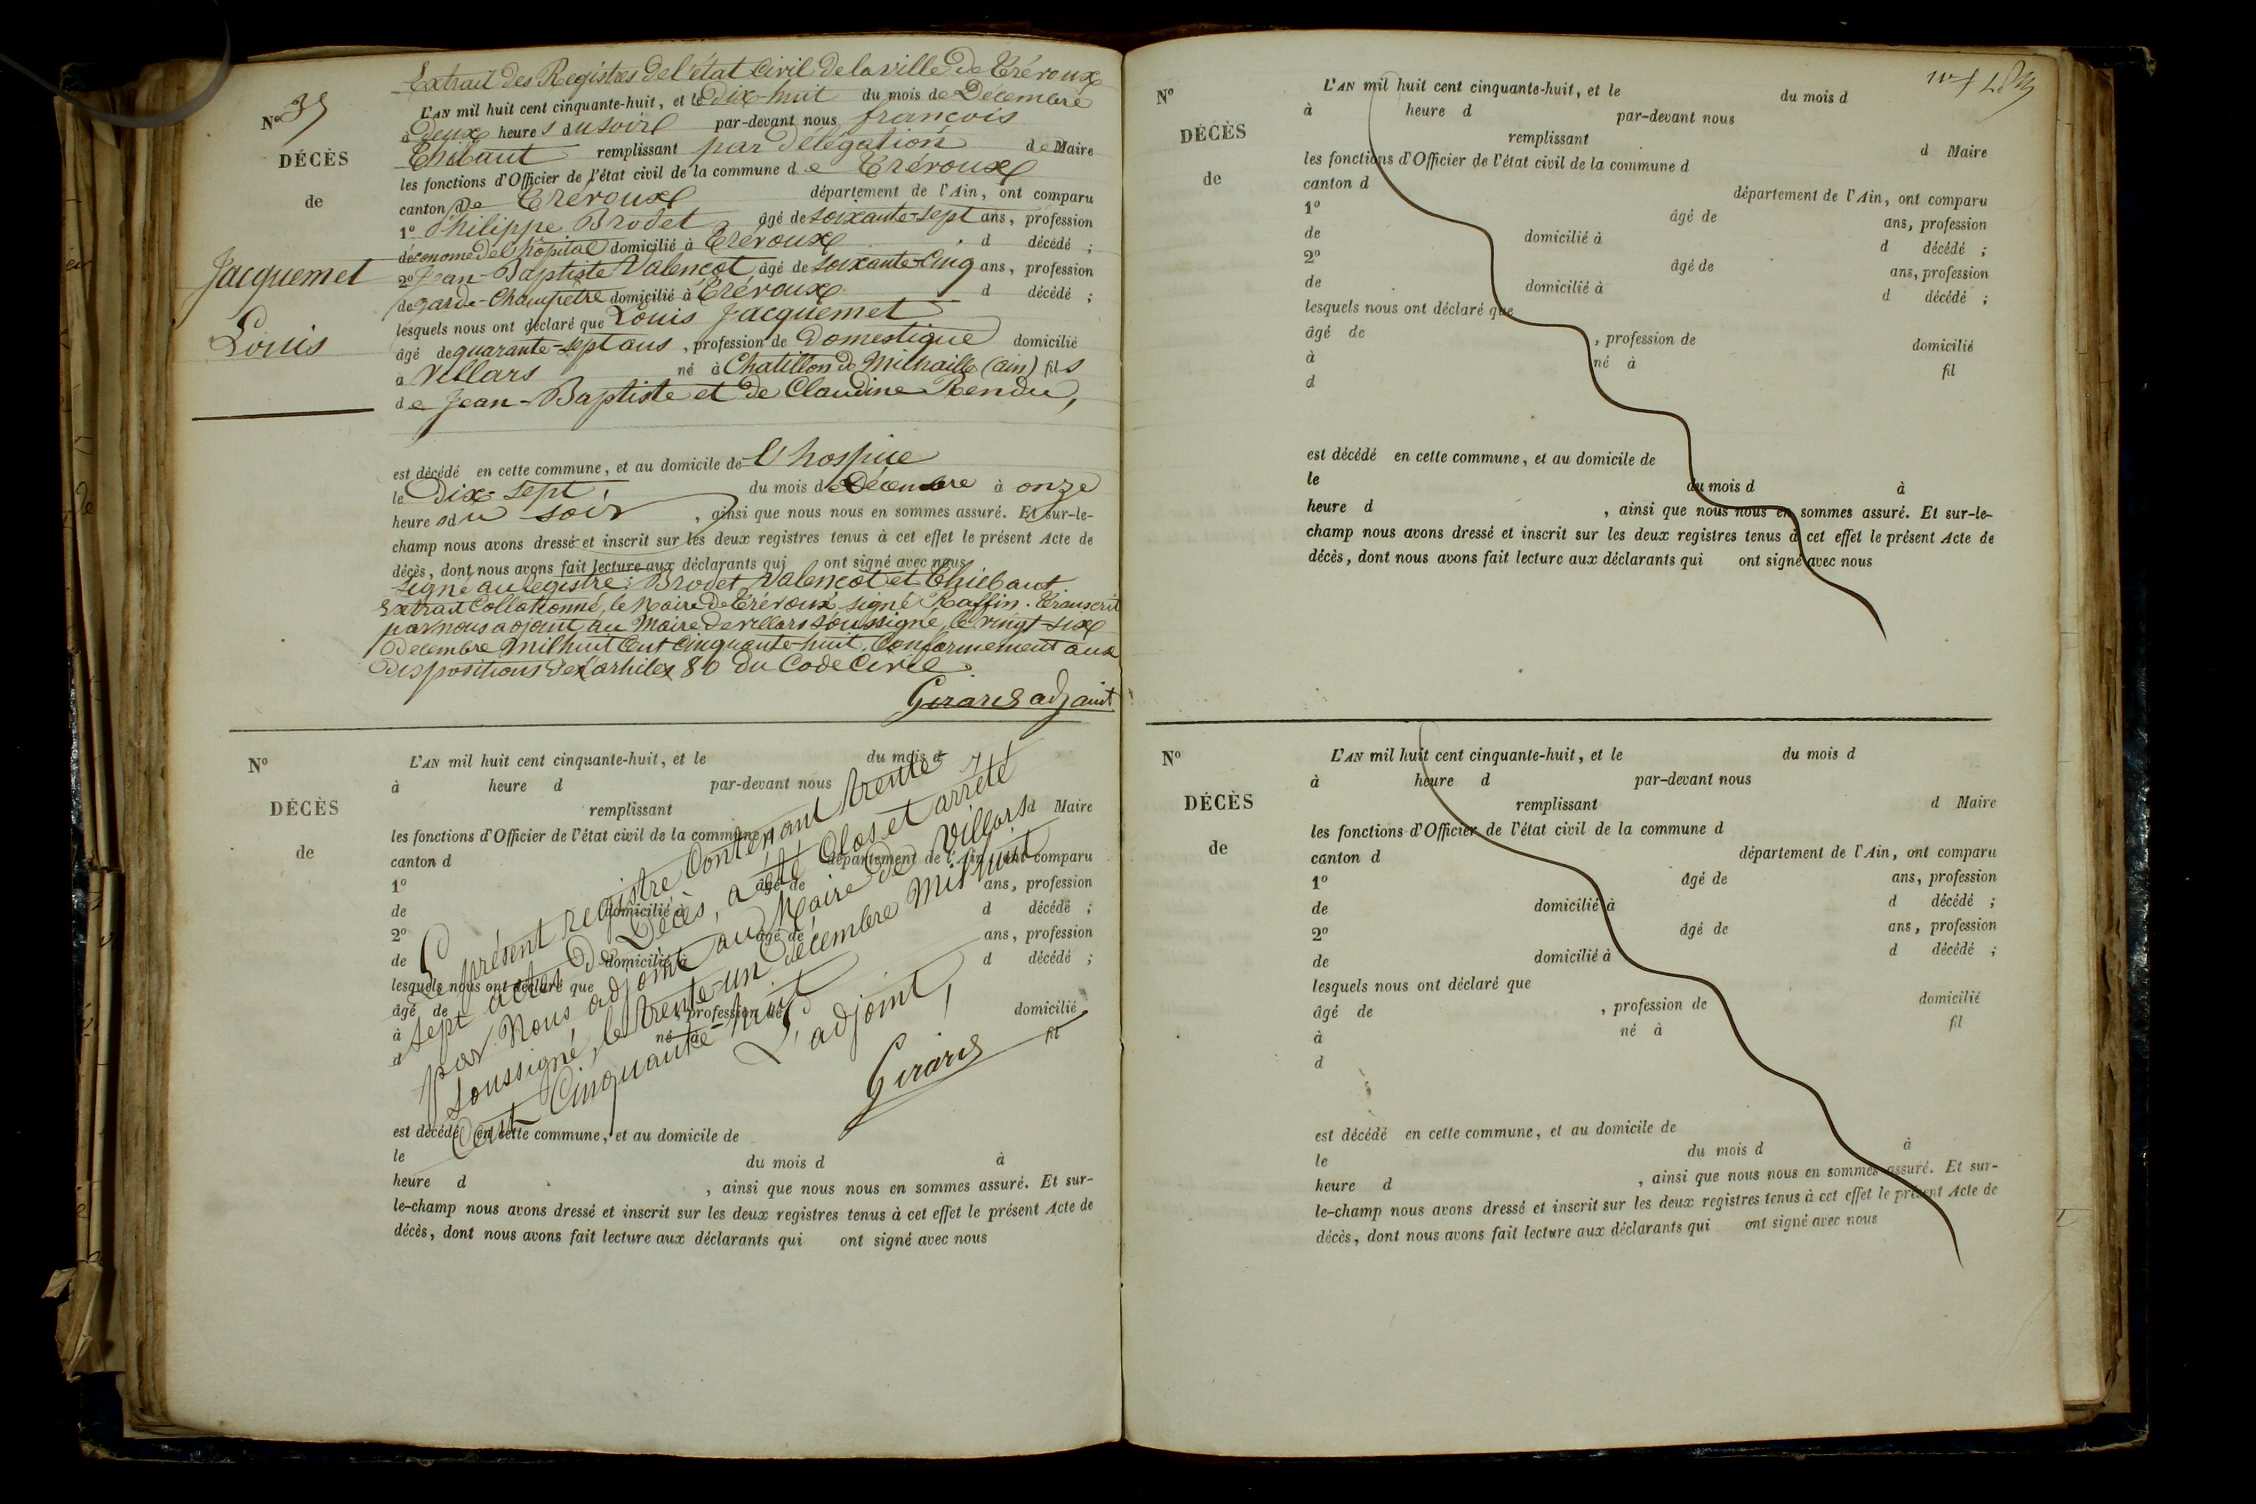 Extrait des Registres de l'état Civil de la ville de Trévoux
N° 37
L'AN mil huit cent cinquante-huit, et le Dix-huit du mois de Décembre
à Deux heures du soir par-devant nous françois
Thiébaut remplissant par délégation de Maire
DÉCÈS
les fonctions d'Officier de l'état civil de la commune de Trévoux
de
canton de Trévoux département de l'Ain, ont comparu
1° Philippe Brodet âgé de soixante-sept ans, profession
d'économe de l'hôpital domicilié à Trévoux d décédé ;
Jacquemet
2° Jean-Baptiste Valençot, âgé de soixante-Cinq ans, profession
de garde-Champêtre domicilié à Trévoux d décédé ;
lesquels nous ont déclaré que Louis Jacquemet
Louis
âgé de quarante-sept ans, profession de Domestique domicilié
à Villars né à Chatillon de Michaille (ain) fils
de Jean-Baptiste et de Claudine Rendu,
est décédé en cette commune, et au domicile de L'hospice
le Dix-sept, du mois de Décembre à onze
heures du soir, ainsi que nous nous en sommes assuré. Et sur-le-
champ nous avons dressé et inscrit sur les deux registres tenus à cet effet le présent Acte de
décès, dont nous avons fait lecture aux déclarants qui ont signé avec nous
signé au registre : Brodet, Valençot et Thiébaut
Extrait Collationné, le Maire de Trévoux signé Raffin. Transcrit
par nous adjoint au Maire de villars soussigné, le vingt-six
Décembre Mil huit Cent Cinquante-huit. Conformément aux
Dispositions de l'article 80 du Code Civil.
Girard adjoint
N°
L'AN mil huit cent cinquante-huit, et le du mois d
à heure d par-devant nous
DÉCÈS
remplissant d Maire
les fonctions d'Officier de l'état civil de la commune d
de
canton d département de l'Ain, ont comparu
1° âgé de ans, profession
de domicilié à d décédé ;
2° âgé de ans, profession
de domicilié à d décédé ;
lesquels nous ont déclaré que
âgé de , profession de domicilié
à né à fil
d
Le présent registre Contenant trente-
sept actes de Décès, a été Clos et arrêté
par Nous adjoint au Maire de Villars
soussigné, le trente-un décembre Mil huit
Cent Cinquante-huit
L'adjoint,
Girard
est décédé en cette commune, et au domicile de
le du mois d à
heure d , ainsi que nous nous en sommes assuré. Et sur-
le-champ nous avons dressé et inscrit sur les deux registres tenus à cet effet le présent Acte de
décès, dont nous avons fait lecture aux déclarants qui ont signé avec nous
N°
L'AN mil huit cent cinquante-huit, et le du mois d
à heure d par-devant nous
DÉCÈS
remplissant d Maire
les fonctions d'Officier de l'état civil de la commune d
de
canton d département de l'Ain, ont comparu
1° âgé de ans, profession
de domicilié à d décédé ;
2° âgé de ans, profession
de domicilié à d décédé ;
lesquels nous ont déclaré que
âgé de , profession de domicilié
à né à fil
d
est décédé en cette commune, et au domicile de
le du mois d à
heure d , ainsi que nous nous en sommes assuré. Et sur-le-
champ nous avons dressé et inscrit sur les deux registres tenus à cet effet le présent Acte de
décès, dont nous avons fait lecture aux déclarants qui ont signé avec nous
N°
L'AN mil huit cent cinquante-huit, et le du mois d
à heure d par-devant nous
DÉCÈS
remplissant d Maire
les fonctions d'Officier de l'état civil de la commune d
de
canton d département de l'Ain, ont comparu
1° âgé de ans, profession
de domicilié à d décédé ;
2° âgé de ans, profession
de domicilié à d décédé ;
lesquels nous ont déclaré que
âgé de , profession de domicilié
à né à fil
d
est décédé en cette commune, et au domicile de
le du mois d à
heure d , ainsi que nous nous en sommes assuré. Et sur-
le-champ nous avons dressé et inscrit sur les deux registres tenus à cet effet le présent Acte de
décès, dont nous avons fait lecture aux déclarants qui ont signé avec nous